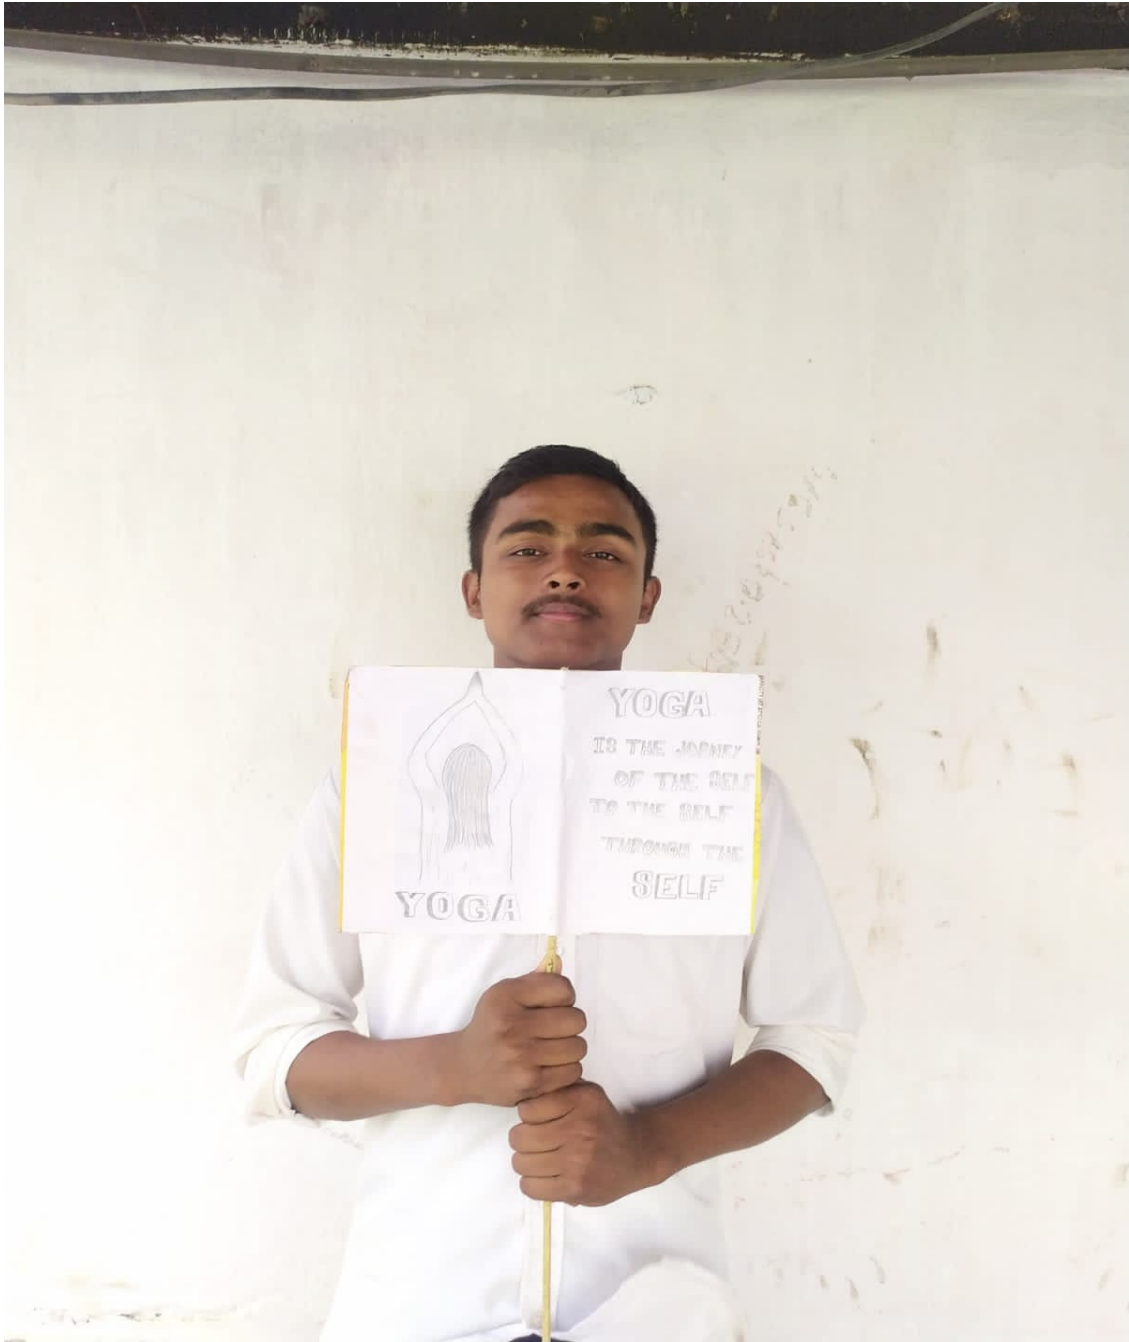 YOGA
YOGA
IS THE JORNEY
OF THE SELF
TO THE SELF
THROUGH THE
SELF